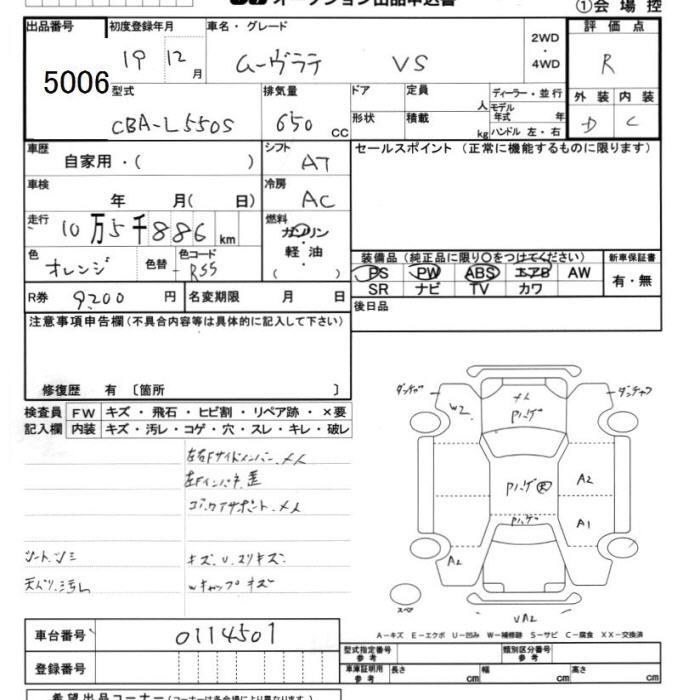 オークション出品申込書
①会場控
出品番号 初度登録年月 車名・グレード 2WD ・ 4WD 評価点
5006 19 12月 ムーヴラテ VS R
型式 排気量 ドア 定員 人 ディーラー・並行 外装 内装
CBA-L550S 650 CC 形状 積載 kg モデル年式 年 ハンドル 左・右 D C
車歴 自家用・( ) シフト AT セールスポイント (正常に機能するものに限ります)
車検 年 月( 日) 冷房 AC
走行 10万5千886km 燃料 ガソリン 軽油 ( )
色 オレンジ 色替 色コード R55
装備品 (純正品に限り○をつけてください) 新車保証書
PS PW ABS エアB AW 有・無
SR ナビ TV カワ
R券 9200円 名変期限 月 日 後日品
注意事項申告欄(不具合内容等は具体的に記入して下さい)
修復歴 有 〔箇所 〕
検査員 FW キズ・飛石・ヒビ割・リペア跡・×要
記入欄 内装 キズ・汚レ・コゲ・穴・スレ・キレ・破レ
左右Fサイドメンバー メメ
左Fインパネ 歪
コアロアサポート メメ
シート シミ キズ、U、スリキズ
天バリ 汚レ Wキャップ キズ
W2
Pハゲ
Pハゲ
A2
Pハゲ
A1
A2
スペア
UA2
A-キズ E-エクボ U-凹み W-補修跡 S-サビ C-腐食 XX-交換済
車台番号 0114501
型式指定番号 参考 類別区分番号 参考
登録番号 車庫証明用 参考 長さ cm 幅 cm 高さ cm
希望出品コーナー (コーナーは各会場により異なります。)